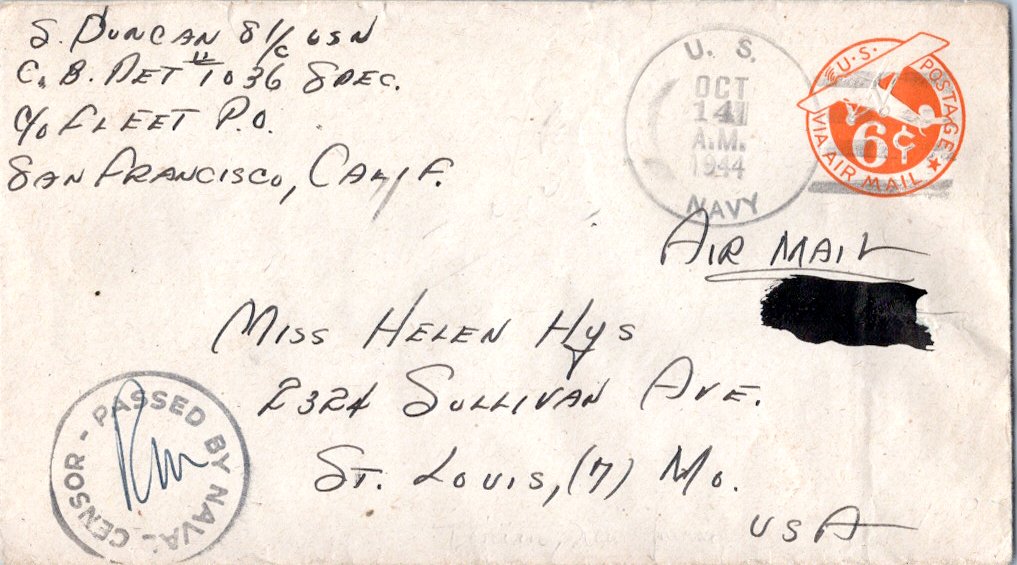 S. DUNCAN S1/c USN
C.B. DET #1036 SPEC.
c/o FLEET P.O.
SAN FRANCISCO, CALIF.
U. S.
OCT
14
A.M.
1944
NAVY
U.S. POSTAGE
6¢
VIA AIR MAIL
AIR MAIL
MISS HELEN HYS
2324 SULLIVAN AVE.
ST. LOUIS, (7) MO.
USA
PASSED BY NAVAL CENSOR -